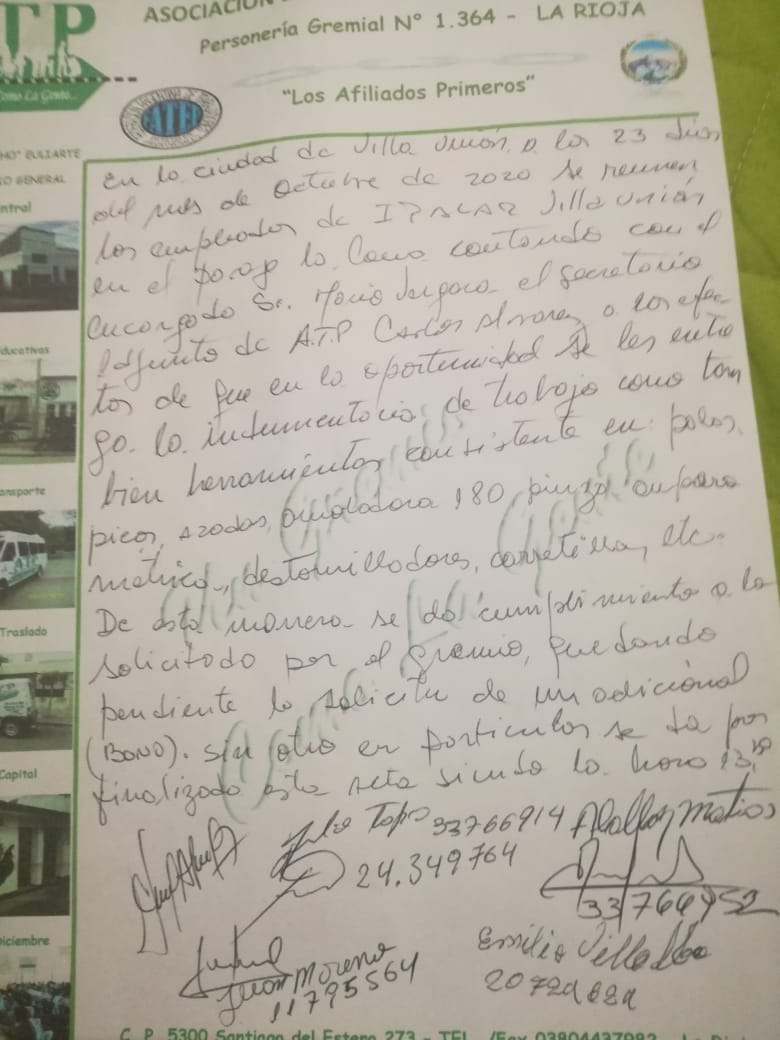 ASOCIACION
Personería Gremial N° 1.364 - LA RIOJA
"Los Afiliados Primeros"
TP
Como La Gente...
ATP
EULIARTE
GENERAL
entral
ducativas
ansporte
Traslado
Capital
Diciembre
en la ciudad de Villa Unión, a los 23 días
del mes de Octubre de 2020 se reunen
los empleados de IPALAR Villa Unión
en el la Coma contando con el
encargado Sr. Mario Vergara el secretario
Adjunto de A.T.P Carlos Alvarez a los efec-
tos de que en la oportunidad se les entre
ga. la indumentaria de trabajo como tam
bien herramientas consistente en: palas,
picos, azadas, amoladora 180 pinza amparo
métrica, destornilladores, carretilla, etc.
De esta manera se da cumplimiento a lo
solicitado por el gremio, quedando
pendiente la solicitu de un adicional
(BONO). sin otro en particular se da por
finalizado esta acta siendo la hora 13,
33766914
24.349764
Matias
33766952
Juan Moreno
11795564
Emilio Villalba
C. P. 5300 Santiago del Estero 273 - TEL. /Fax 03804437982